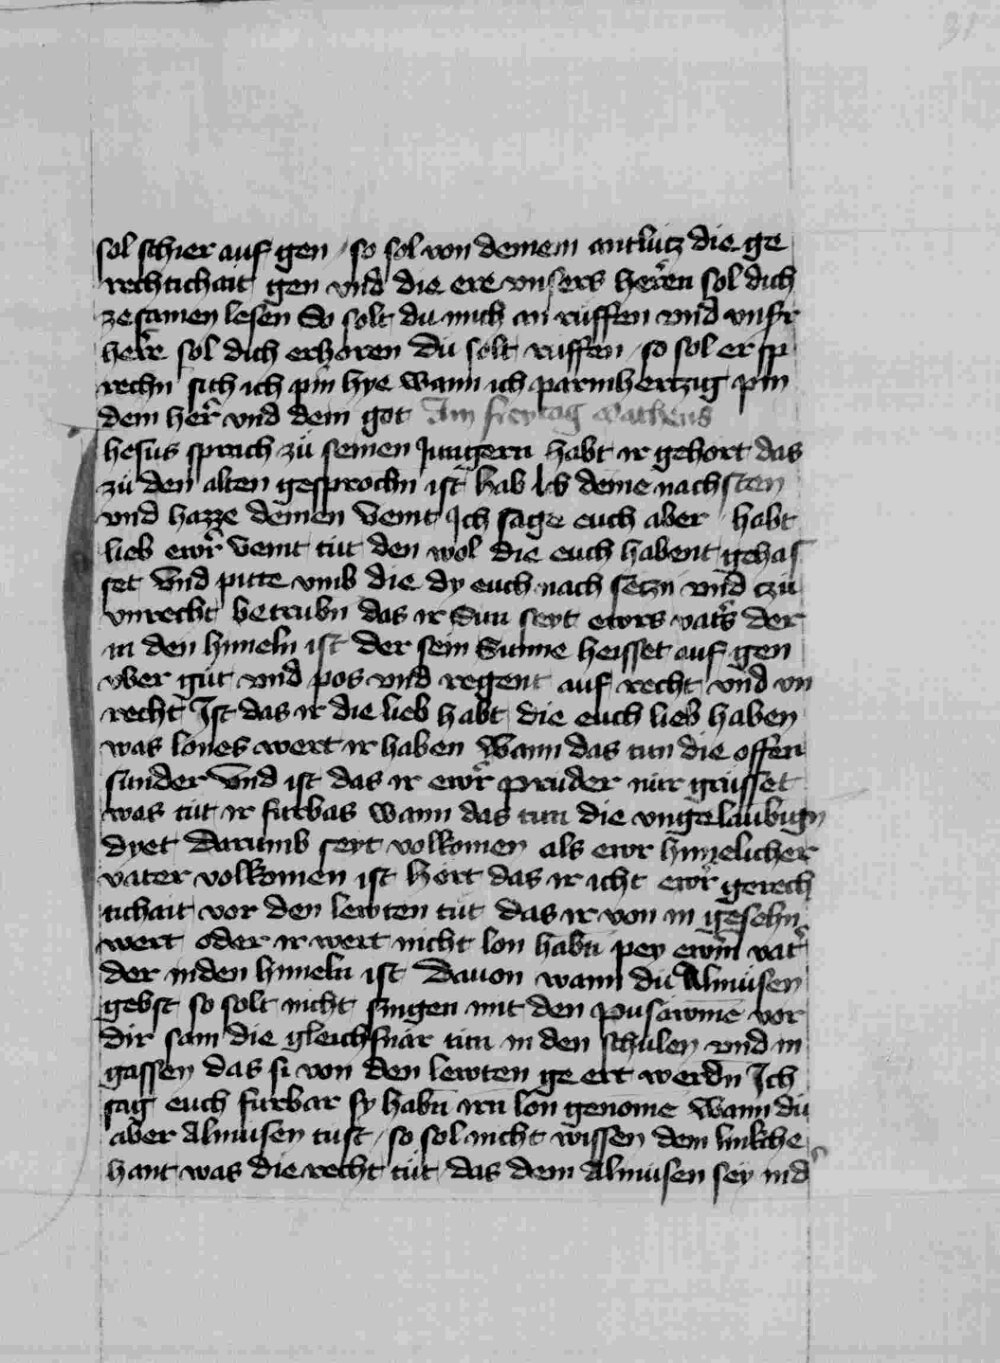 31
sol schier auf gen / so sol von deinem antlutz die ge
rechtichait gen vnd die ere vnsers herren sol dich
zesamen lesen So solt du mich an ruffen vnd vnser
herr sol dich erhoren du solt ruffen / so sol er sp
rechn sich ich pin hye wann ich parmhertzig pin
dein her̃ vnd dein got Im freytag matheus
Jhesus sprach zu seinen Jungern habt ir gehort das
zu den alten gesprochn ist hab lib deine nachsten
vnd hazze deinen veint Ich sage euch aber / habt
lieb ewr̃ veint tut den wol die euch habent gehas
set vnd pitte vmb die dy euch nach setzn vnd tzu
vnrecht betrubn das ir Sun seyt ewrs vat̃s der
in den himeln ist der sein Sunne heisset auf gen
vber gut vnd pos vnd regent auf recht vnd vn
recht Ist das ir die lieb habt die euch lieb haben
was lones wert ir haben Wann das tun die offen
sunder Vnd ist das ir ewr̃ pruder nur grusset
was tut ir furbas wann das tun die vngelaubign
dyet Darumb seyt volkomen als ewr himelicher
vater volkomen ist Hort das ir icht ewr̃ gerech
tichait vor den lewten tut das ir von in gesehn
wert oder ir wert nicht lon habn̄ pey ewrm̄ vat̃
der in den himeln ist Dauon wann du Almusen
gebst so solt nicht singen mit den pusawmē vor
dir sam die gleichsnar tun in den schulen vnd in
gassen das si von den lewten ge ert werdn̄ Ich
sag euch furbar sy habn̄ irn̄ lon genome Wann du
aber Almusen tust / so sol nicht wissen dein linkche
hant was die recht tut / das dein Almusen sey in d̃